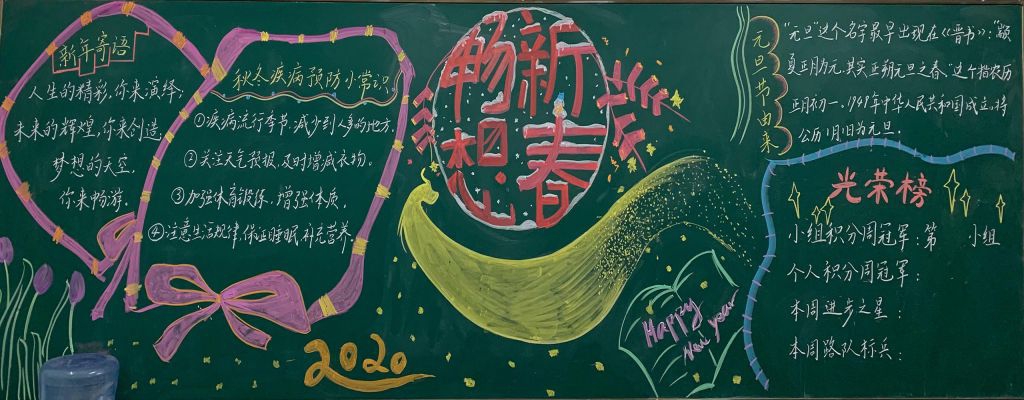 新年寄语
人生的精彩,你来演绎,
未来的辉煌,你来创造,
梦想的天空,
你来畅游。
秋冬疾病预防小常识
①疾病流行季节,减少到人多的地方.
②关注天气预报,及时增减衣物。
③加强体育锻炼,增强体质。
④注意生活规律,保证睡眠,补充营养
畅想
新春
2020
Happy
New year
元旦节由来
“元旦”这个名字最早出现在《晋书》:“颛
夏正月为元,其实正朔元旦之春”这个指农历
正月初一,1949年中华人民共和国成立,将
公历1月1日为元旦。
光荣榜
小组积分周冠军:第 小组
个人积分周冠军:
本周进步之星:
本周路队标兵: